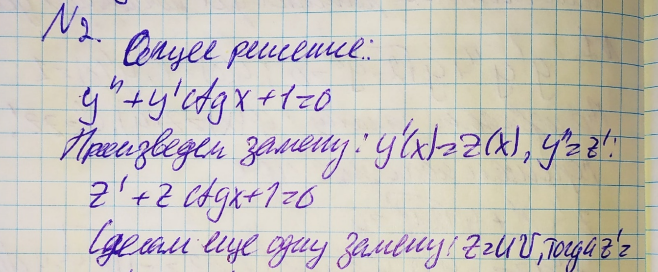 N2.
Общее решение:
y" + y' ctgx + 1 = 0
Произведем замену: y'(x) = z(x), y" = z':
z' + z ctgx + 1 = 0
Сделаем еще одну замену: z = uv, тогда z' =